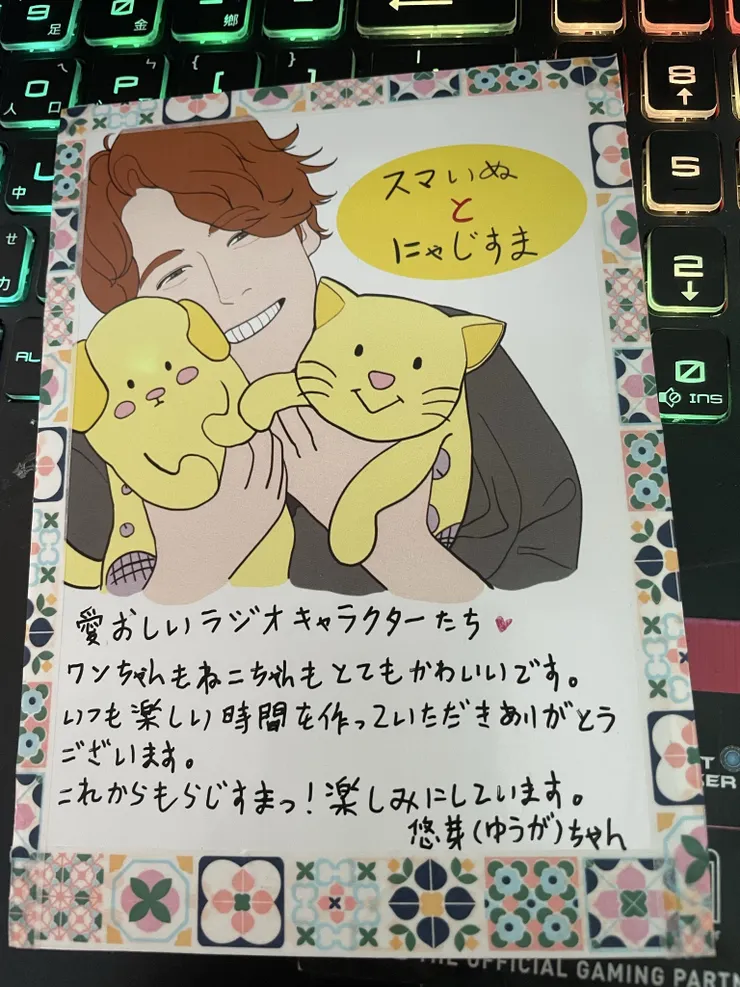 9
足
0
金
鄉
人
O
口
P
{
[
}
]
中
L
せ
力
AL
8
↑
5
2
↓
0
INS
スマいぬ
と
にゃじすま
愛おしいラジオキャラクターたち♥
ワンちゃんもねこちゃんもとてもかわいいです。
いつも楽しい時間を作っていただきありがとう
ございます。
これからもらじすまっ!楽しみにしています。
悠芽(ゆうが)ちゃん
THE OFFICIAL GAMING PARTN